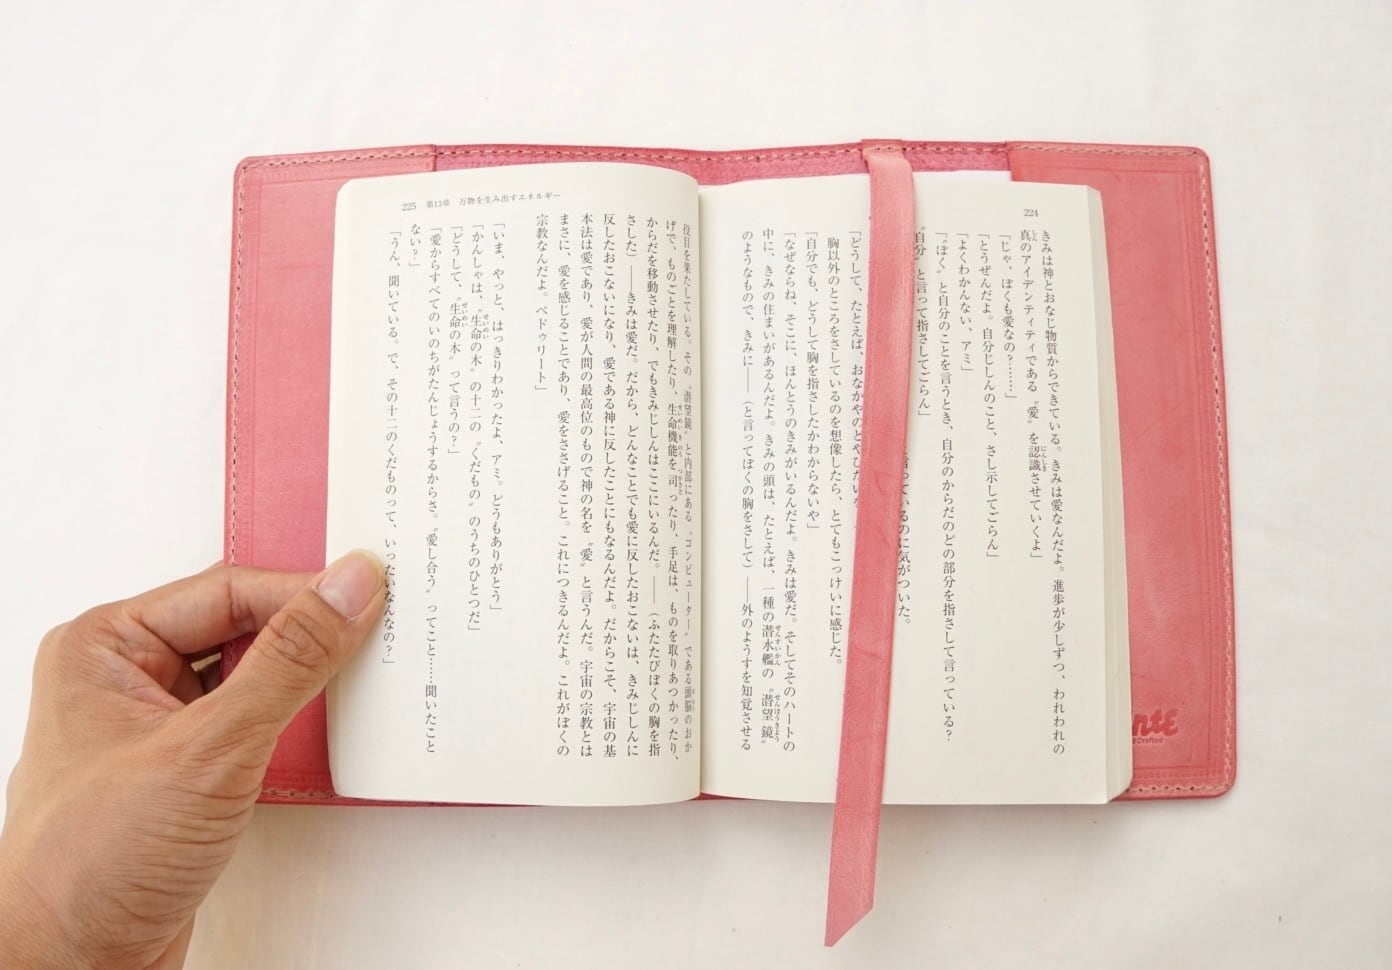 224
きみは神とおなじ物質からできている。きみは愛なんだよ。進歩が少しずつ、われわれの
真のアイデンティティである〝愛〟を認識させていくよ」
「じゃ、ぼくも愛なの？………」
「とうぜんだよ。自分じしんのこと、さし示してごらん」
「よくわかんない、アミ」
「〝ぼく〟と自分のことを言うとき、自分のからだのどの部分を指さして言っている？
〝自分〟と言って指さしてごらん」
言っているのに気がついた。
「どうして、たとえば、おなかやのどやひたいを
胸以外のところをさしているのを想像したら、とてもこっけいに感じた。
「自分でも、どうして胸を指さしたかわからないや」
「なぜならね、そこに、ほんとうのきみがいるんだよ。きみは愛だ。そしてそのハートの
中に、きみの住まいがあるんだよ。きみの頭は、たとえば、一種の潜水艦の〝潜望鏡〟
のようなもので、きみに――（と言ってぼくの胸をさして）――外のようすを知覚させる
225 第13章 万物を生み出すエネルギー
役目を果たしている。その〝潜望鏡〟と内部にある〝コンピューター〟である頭脳のおか
げで、ものごとを理解したり、生命機能を司ったり、手足は、ものを取りあつかったり、
からだを移動させたり、でもきみじしんはここにいるんだ。――（ふたたびぼくの胸を指
さした）――きみは愛だ。だから、どんなことでも愛に反したおこないは、きみじしんに
反したおこないになり、愛である神に反したことにもなるんだよ。だからこそ、宇宙の基
本法は愛であり、愛が人間の最高位のもので神の名を〝愛〟と言うんだ。宇宙の宗教とは
まさに、愛を感じることであり、愛をささげること。これにつきるんだよ。これがぼくの
宗教なんだよ。ペドゥリート」
「いま、やっと、はっきりわかったよ、アミ。どうもありがとう」
「かんしゃは、〝生命の木〟の十二の〝くだもの〟のうちのひとつだ」
「どうして、〝生命の木〟って言うの？」
「愛からすべてのいのちがたんじょうするからさ。〝愛し合う〟ってこと……聞いたこと
ない？」
「うん、聞いている。で、その十二のくだものって、いったいなんなの？」
Crafted